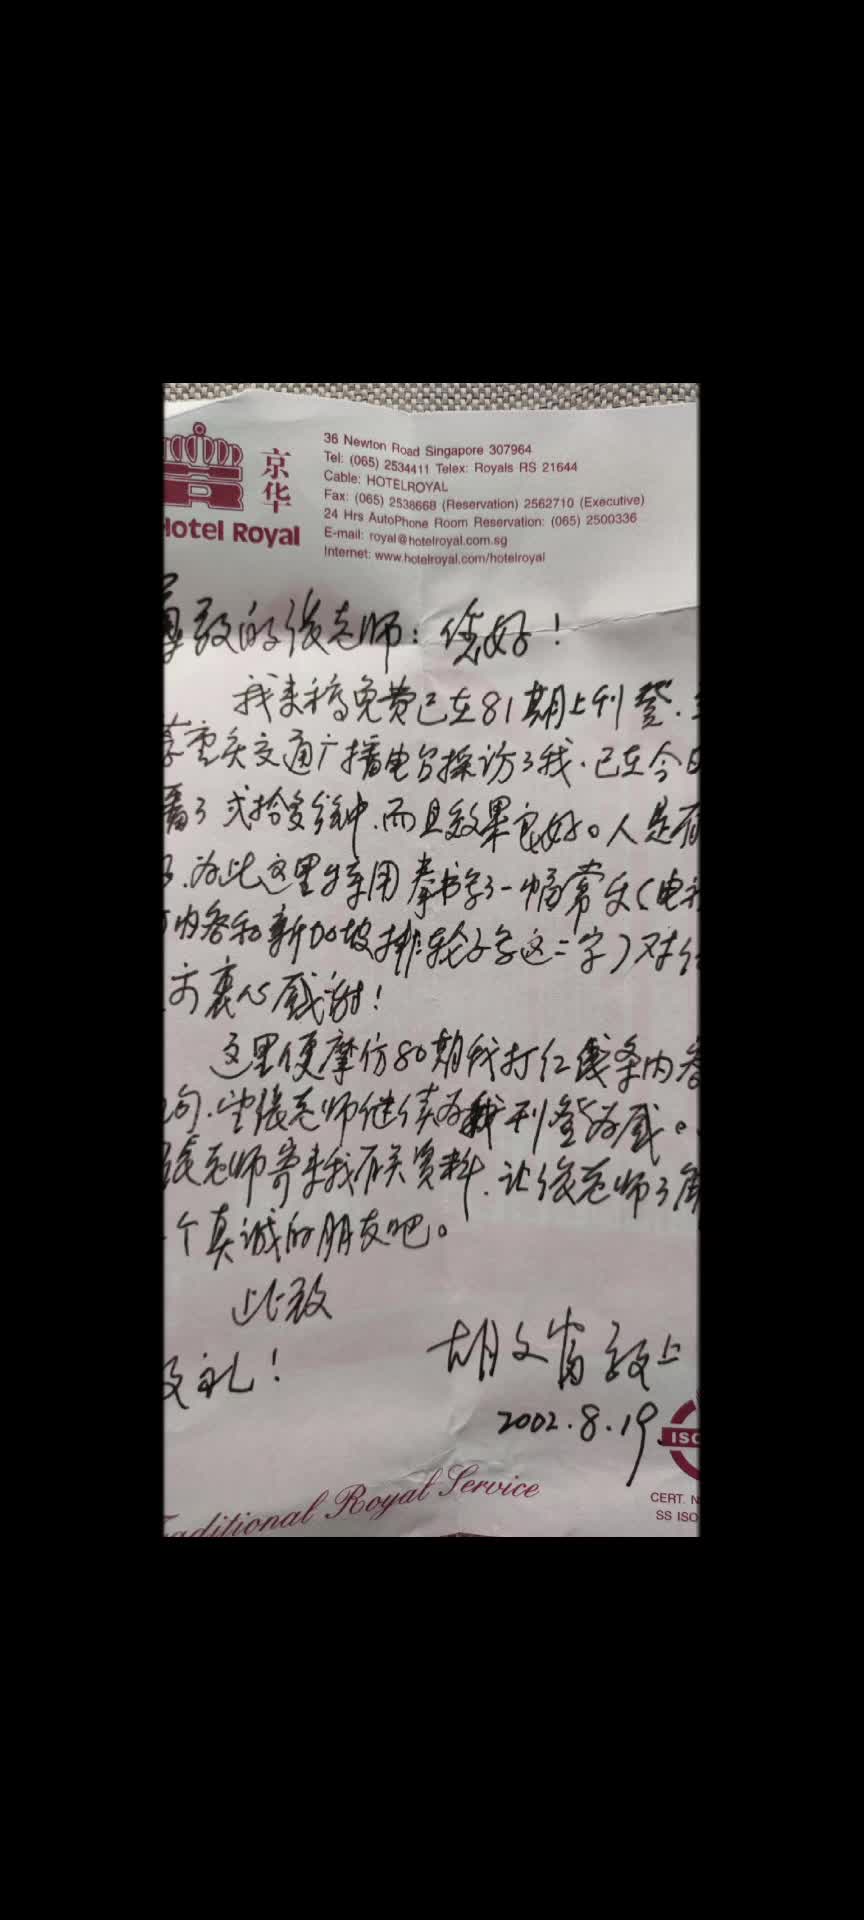 京华
Hotel Royal
36 Newton Road Singapore 307964
Tel: (065) 2534411 Telex: Royals RS 21644
Cable: HOTELROYAL
Fax: (065) 2538668 (Reservation) 2562710 (Executive)
24 Hrs AutoPhone Room Reservation: (065) 2500336
E-mail: royal@hotelroyal.com.sg
Internet: www.hotelroyal.com/hotelroyal
尊敬的张老师：您好！
我来稿免费已在81期上刊登.
重庆交通广播电台採访了我.已在今日
播了弍拾多分钟.而且效果良好。人是有
为此这里特用拳书写了一幅常乐(电视
内容和新加坡排轮子字这二字)对
方衷心感谢！
这里便摩仿80期我打仁我条内卷
句.望张老师继续为我刊登为感。
张老师寄来我有关资料.让张老师了解
个真诚的朋友吧。
此致
胡文富敬上
敬礼！
2002.8.19
Traditional Royal Service
ISO
CERT. N
SS ISO